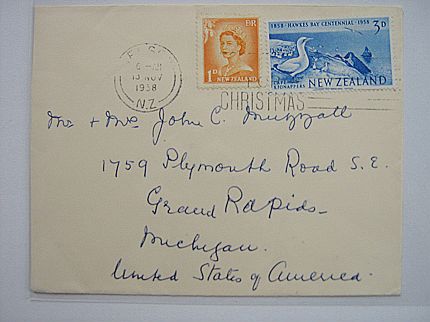 6 - AM
13 NOV
1958
N.Z.
ER
1D
NEW ZEALAND
1858 - HAWKES BAY CENTENNIAL - 1958
3D
CAPE KIDNAPPERS
NEW ZEALAND
CHRISTMAS
Mr + Mrs John C. Muzzall
1759 Plymouth Road S.E.
Grand Rapids -
Michigan.
United States of America.